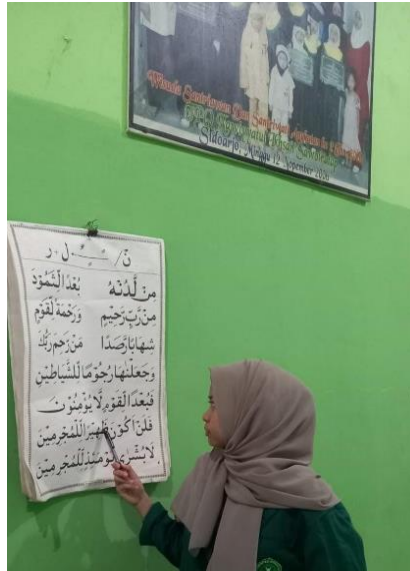 Wisuda Dan Angkatan ke
Sidoarjo, Minggu 12 Nopember 2020
نْ / ل + ر
مِنْ لَّدُنْهُ بُعْدًا لِّثَمُوْدَ
مِنْ رَّبٍّ رَّحِيْمٍ وَرَحْمَةٌ لِّقَوْمٍ
شِهَابًا رَّصَدًا مَنْ رَّحِمَ رَبُّكَ
وَجَعَلْنٰهَا رُجُوْمًا لِّلشَّيَاطِيْنِ
فَبُعْدًا لِّقَوْمٍ لَّا يُؤْمِنُوْنَ
فَلَنْ اَكُوْنَ ظَهِيْرًا لِّلْمُجْرِمِيْنَ
لَا بُشْرٰى يَوْمَئِذٍ لِّلْمُجْرِمِيْنَ